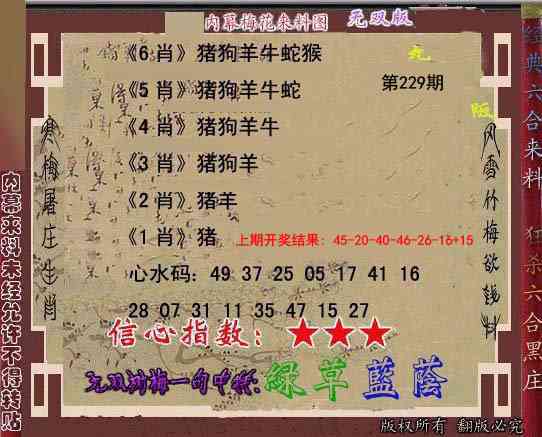 内幕梅花来料图 无双版
《6 肖》猪狗羊牛蛇猴
《5 肖》猪狗羊牛蛇
第229期
《4 肖》猪狗羊牛
《3 肖》猪狗羊
《2 肖》猪羊
《1 肖》猪
上期开奖结果：45-20-40-46-26-16+15
心水码：49 37 25 05 17 41 16
28 07 31 11 35 47 15 27
信心指数：★★★
一句中特:綠草藍蔭
版权所有 翻版必究
寒梅屠庄生肖
风雪竹梅欲钱料
内幕来料未经允许不得转贴
经典六合来料 狂杀六合黑庄